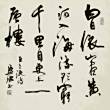 白日依山盡黄
河入海流欲窮
千里目更上一
層樓